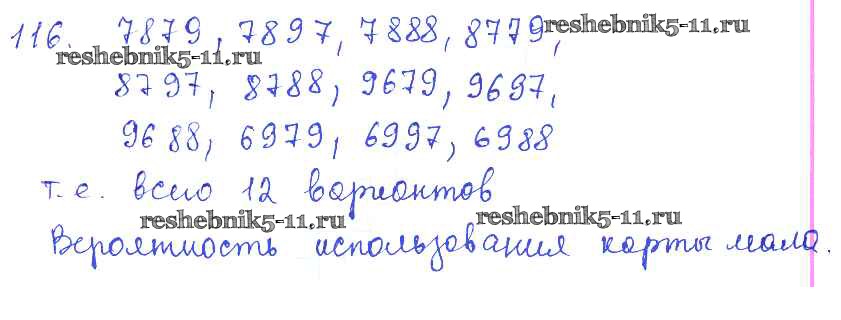 116. 7879, 7897, 7888, 8779, reshebnik5-11.ru
reshebnik5-11.ru
8797, 8788, 9679, 9697,
9688, 6979, 6997, 6988
т.е. всего 12 вариантов
reshebnik5-11.ru reshebnik5-11.ru
Вероятность использования карты мала.